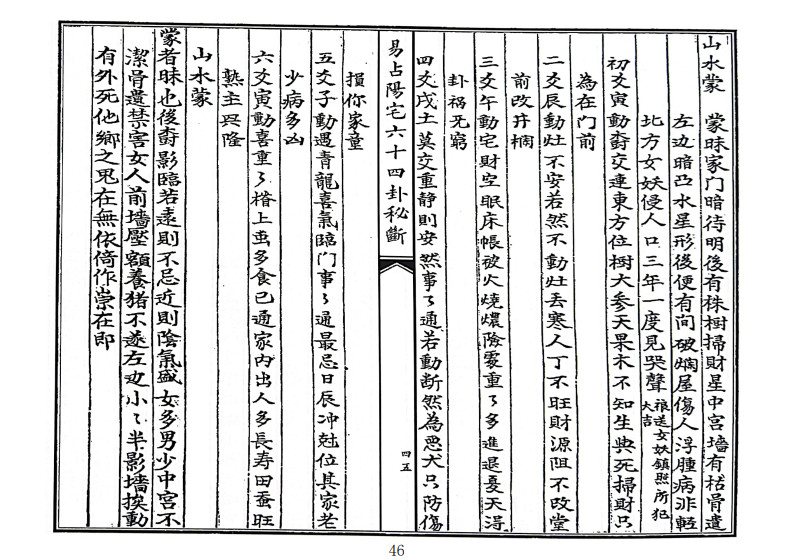 山水蒙　蒙昧家门暗待明後有株樹掃財星中宮墻有枯骨遣
左边暗凸水星形後便有间破爛屋傷人浮腫病非軽
北方女妖侵人口三年一度見哭聲祿送女妖鎮照所犯大吉
初爻寅動喬交連東方位樹大参天果木不知生與死掃財只
為在门前
二爻辰動灶不安若然不動灶丢寒人丁不旺財源阻不改堂
前改井榈
三爻午動宅財空眠床帳被火燒燶險處重了多進退憂天淂
卦禍旡窮
四爻戌土莫交重静則安然事了通若動断然為恶犬只防傷
易占陽宅六十四卦秘斷
四五
損你家童
五爻子動遇青龍喜氣臨门事了通最忌日辰冲尅位其家老
少病多凶
六爻寅動喜重了楷上虫多食已通家内出人多長寿田蚕旺
熟主興隆
山水蒙
蒙者昧也後喬影臨若遠則不忌近則陰氣盛女多男少中宮不
潔骨遺禁害女人前墻壓額養猪不遂左边小小半影墻挨動
有外死他鄉之鬼在無依倚作祟在即
46